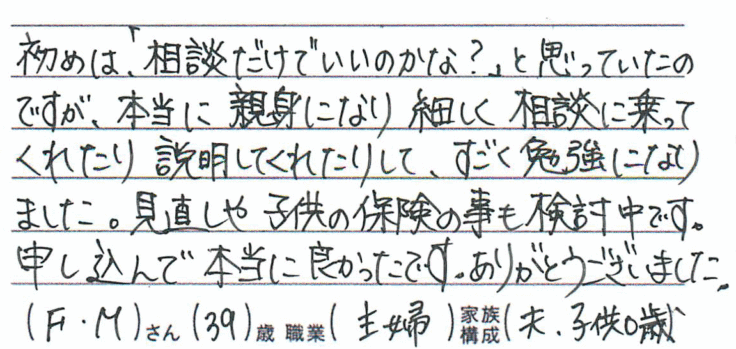 初めは、「相談だけでいいのかな?」と思っていたの
ですが、本当に親身になり細しく相談に乗って
くれたり説明してくれたりして、すごく勉強になり
ました。見直しや子供の保険の事も検討中です。
申し込んで本当に良かったです。ありがとうございました。
(F・M)さん(39)歳 職業(主婦)家族構成(夫、子供0歳)